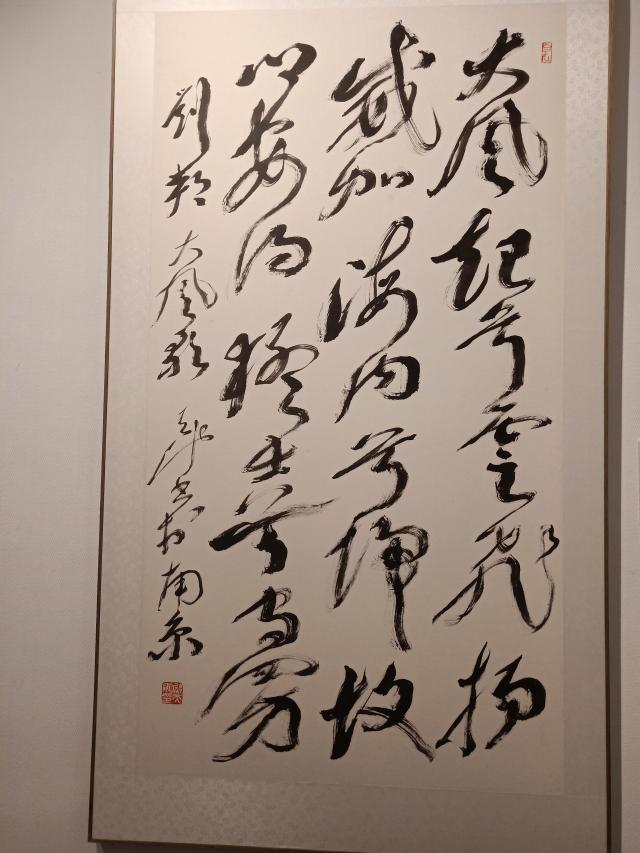 大風起兮雲飛揚
威加海内兮歸故
鄉安得猛士兮守四方
劉邦大風歌書於南京